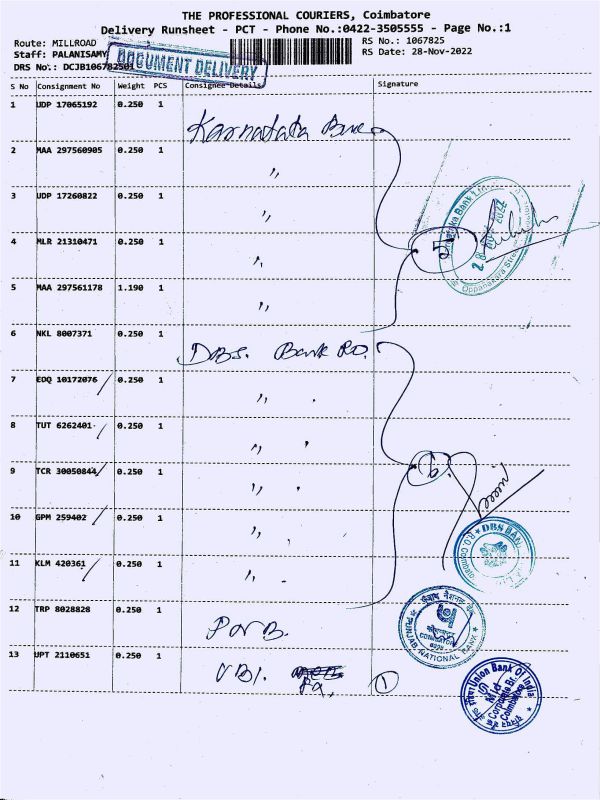 THE PROFESSIONAL COURIERS, Coimbatore
Delivery Runsheet - PCT - Phone No.:0422-3505555 - Page No.:1
Route: MILLROAD
RS No.: 1067825
Staff: PALANISAMY
RS Date: 28-Nov-2022
DRS No.: DCJB106782501
DOCUMENT DELIVERY
S No Consignment No Weight PCS Consignee Details Signature
1 UDP 17065192 0.250 1 Karnataka Bank
2 MAA 297560905 0.250 1 "
3 UDP 17260822 0.250 1 "
4 MLR 21310471 0.250 1 "
5 MAA 297561178 1.190 1 "
28 NOV 2022
Oppanakara Street
6 NKL 8007371 0.250 1 DBS. Bank RO.
7 EDQ 10172076 0.250 1 "
8 TUT 6262401 0.250 1 "
9 TCR 30050844 0.250 1 "
6
10 GPM 259402 0.250 1 "
11 KLM 420361 0.250 1 "
DBS BAN
12 TRP 8028828 0.250 1 PNB.
पंजाब नैशनल बैंक
PUNJAB NATIONAL BANK
13 UPT 2110651 0.250 1 UBI.
1
Union Bank Of India
Corporate Br.
Coimbatore